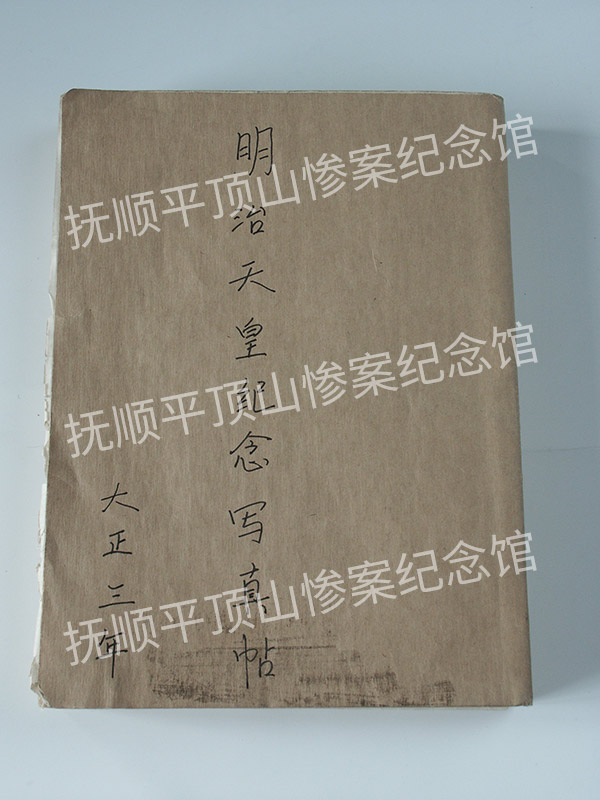 明治天皇紀念写真帖
大正三年
抚顺平顶山惨案纪念馆
抚顺平顶山惨案纪念馆
抚顺平顶山惨案纪念馆